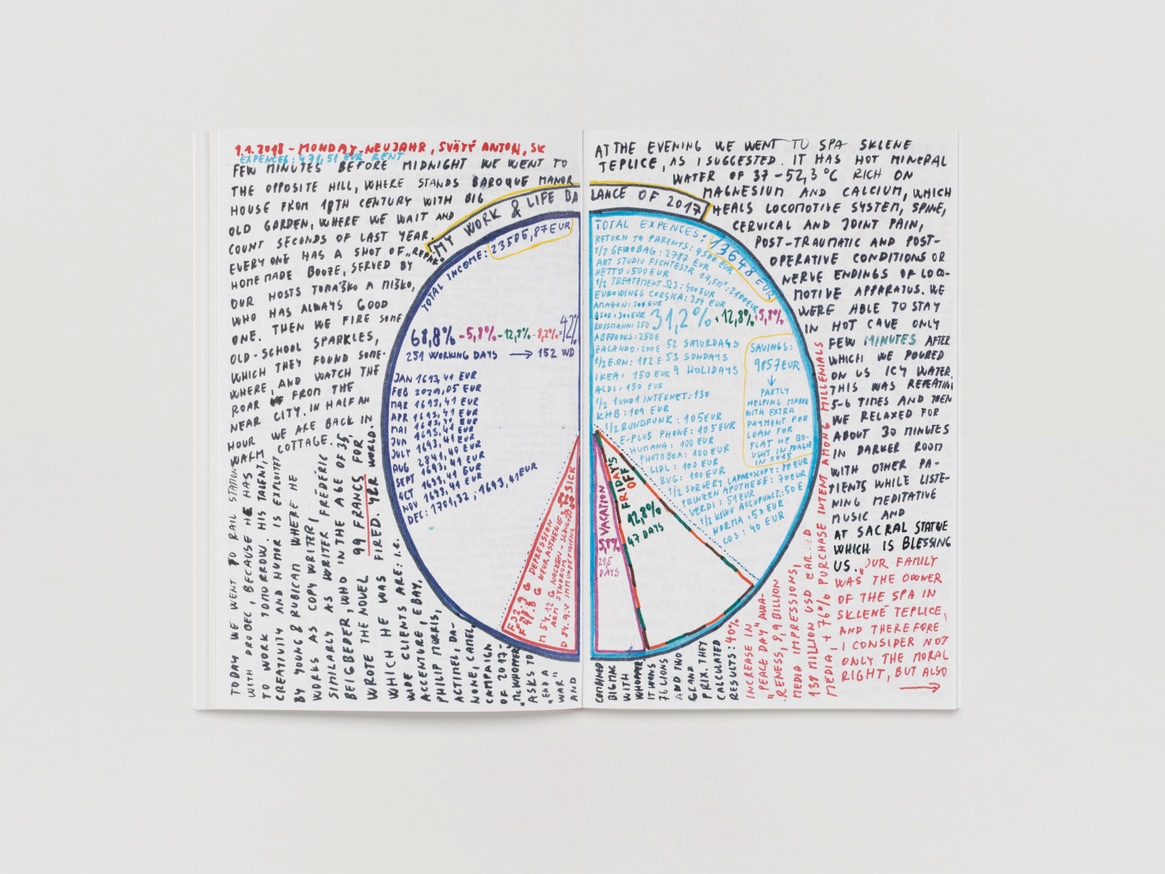 1.1.2018 - MONDAY - NEUJAHR, SVÄTÝ ANTON, SK
EXPENCES: 471,51 EUR RENT
FEW MINUTES BEFORE MIDNIGHT WE WENT TO
THE OPPOSITE HILL, WHERE STANDS BAROQUE MANOR
HOUSE FROM 18TH CENTURY WITH BIG
OLD GARDEN, WHERE WE WAIT AND
COUNT SECONDS OF LAST YEAR.
EVERYONE HAS A SHOT OF
HOMEMADE BOOZE, SERVED BY
OUR HOSTS TOMAŠKO A MIŠKO,
WHO HAS ALWAYS GOOD
ONE. THEN WE FIRE SOME
OLD-SCHOOL SPARKLES,
WHICH THEY FOUND SOME-
WHERE, AND WATCH THE
ROAR FROM THE
NEAR CITY. IN HALF AN
HOUR WE ARE BACK IN
WARM COTTAGE.
TODAY WE WENT TO RAIL STATION
WITH DROBEC, BECAUSE HE HAS
TO WORK TOMORROW. HIS TALENT,
CREATIVITY AND HUMOR IS EXPLOITED
BY YOUNG & RUBICAM WHERE HE
WORKS AS COPY WRITER,
SIMILARLY AS WRITER FRÉDÉRIC
BEIGBEDER, WHO IN THE AGE OF 35
WROTE THE NOVEL 99 FRANCS FOR
WHICH HE WAS FIRED. Y&R WORLD-
WIDE CLIENTS ARE: I.E.
ACCENTURE, EBAY,
PHILIP MORRIS,
ACTIMEL, DA-
NONE, CAMEL.
CAMPAIGN
OF 2017:
"MCWHOPPER"
ASKS TO
"END A
WAR"
AND
MY WORK & LIFE BALANCE OF 2017
TOTAL INCOME: 23505,87 EUR
68,8% -5,8% -12,8% -8,2% =42%
251 WORKING DAYS → 152 WD
JAN 1693,41 EUR
FEB 2029,05 EUR
MAR 1693,41 EUR
APR 1693,41 EUR
MAI 1693,41 EUR
JUN 1693,41 EUR
JULY 1693,41 EUR
AUG 2841,40 EUR
SEPT 1693,41 EUR
OCT 1693,41 EUR
NOV 1693,41 EUR
DEC: 1701,32, 1693,41 EUR
SICK
DEPRESSION
NEURASTHENIE
VACATION
5,8%
21,5
DAYS
FRIDAYS
OFF
12,8%
47 DAYS
TOTAL EXPENCES: 13648 EUR
RETURN TO PARENTS: 4500 EUR
1/2 GEWOBAG: 2782 EUR
ART STUDIO FICHTESTR 17,5M²: 2100 EUR
NETTO: 500 EUR
1/2 TREATEMENT Ω3: 400 EUR
EUROWINGS CORSIKA: 389 EUR
AMAZON: 300 EUR
31,2% +12,8% +5,8%
52 SATURDAYS
53 SUNDAYS
9 HOLIDAYS
ABEBOOKS: 250 E
ZALANDO: 200 E
1/2 E.ON: 182 E
IKEA: 150 EUR
ALDI: 150 EUR
1/2 1UND1 INTERNET: 130
KHB: 109 EUR
1/2 RUNDFUNK: 105 EUR
E-PLUS PHONE: 105 EUR
HUMANA: 100 EUR
PHOTOBOX: 100 EUR
LIDL: 100 EUR
BVG: 100 EUR
1/2 SURGERY LAPAROSCOPY: 70 EUR
APOTHEKE: 70 EUR
VERDI: 51 EUR
1/2 KIWU ACCUPUNCT: 50 E
NORMA: 50 EUR
COS: 40 EUR
SAVINGS:
9857 EUR
↓
PARTLY
HELPING
WITH EXTRA
PAYMENT FOR
LOAN FOR
FLAT HE BO-
UGHT IN PRAGH
AT THE EVENING WE WENT TO SPA SKLENE
TEPLICE, AS I SUGGESTED. IT HAS HOT MINERAL
WATER OF 37-52,3°C RICH ON
MAGNESIUM AND CALCIUM, WHICH
HEALS LOCOMOTIVE SYSTEM, SPINE,
CERVICAL AND JOINT PAIN,
POST-TRAUMATIC AND POST-
OPERATIVE CONDITIONS OR
NERVE ENDINGS OF LOCO-
MOTIVE APPARATUS. WE
WERE ABLE TO STAY
IN HOT CAVE ONLY
FEW MINUTES AFTER
WHICH WE POURED
ON US ICY WATER.
THIS WAS REPEATING
5-6 TIMES AND THEN
WE RELAXED FOR
ABOUT 30 MINUTES
IN DARKER ROOM
WITH OTHER PA-
TIENTS WHILE LISTE-
NING MEDITATIVE
MUSIC AND
AT SACRAL STATUE
WHICH IS BLESSING
US. "OUR FAMILY
WAS THE OWNER
OF THE SPA IN
SKLENÉ TEPLICE,
AND THEREFORE
I CONSIDER NOT
ONLY THE MORAL
RIGHT, BUT ALSO
→
COMBINED
BIGMAC
WITH
WHOPPER
IT WONS
76 LIONS
AND TWO
GRAND
PRIX. THEY
CALCULATED
RESULTS: 40%
INCREASE IN
"PEACE DAY" AWA-
RENESS, 8,9 BILLION
MEDIA IMPRESSIONS,
138 MILLION USD EAR. :D
MEDIA, +76% PURCHASE INTENT AMONG MILLENIALS